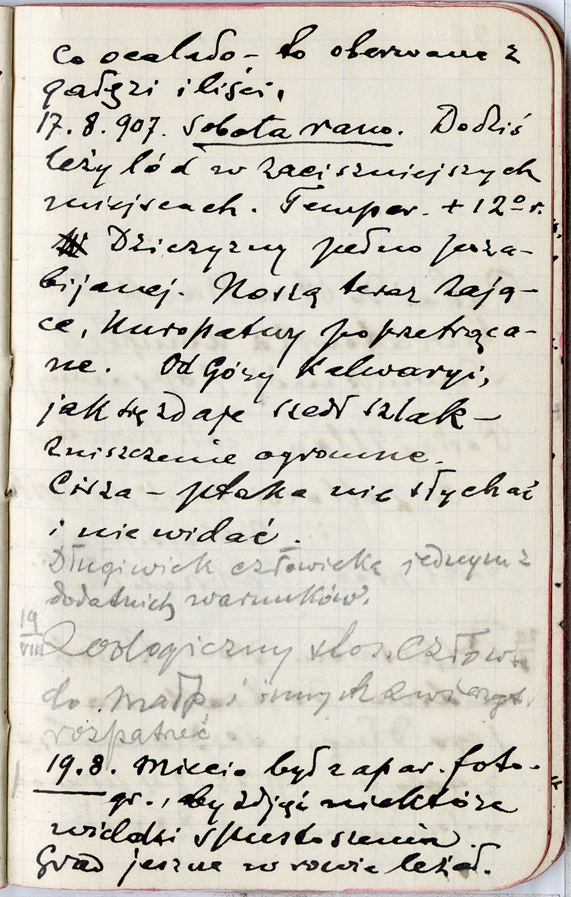 co ocalało – to oberwane z
gałęzi i liści.
17.8.907. Sobota rano. Dodziś
leży lód w zaciszniejszych
miejscach. Temper. +12º r.
Dziczyzny pełno poza-
bijanej. Noszą teraz zają-
ce, kuropatwy poprzetrąca-
ne. Od Góry Kalwaryi,
jak się zdaje szedł szlak –
zniszczenie ogromne.
Cisza – ptaka nie słychać
i nie widać.
Długi wiek człowieka jednym z
dodatnich warunków.
19
VIII
Zoologiczny stos. człow.
do małp i innych zwierząt
rozpatrzeć
19.8. Miecio był z apar. foto-
gr., aby zdjąć niektóre
widoki spustoszenia.
Grad jeszcze w rowie leżał.